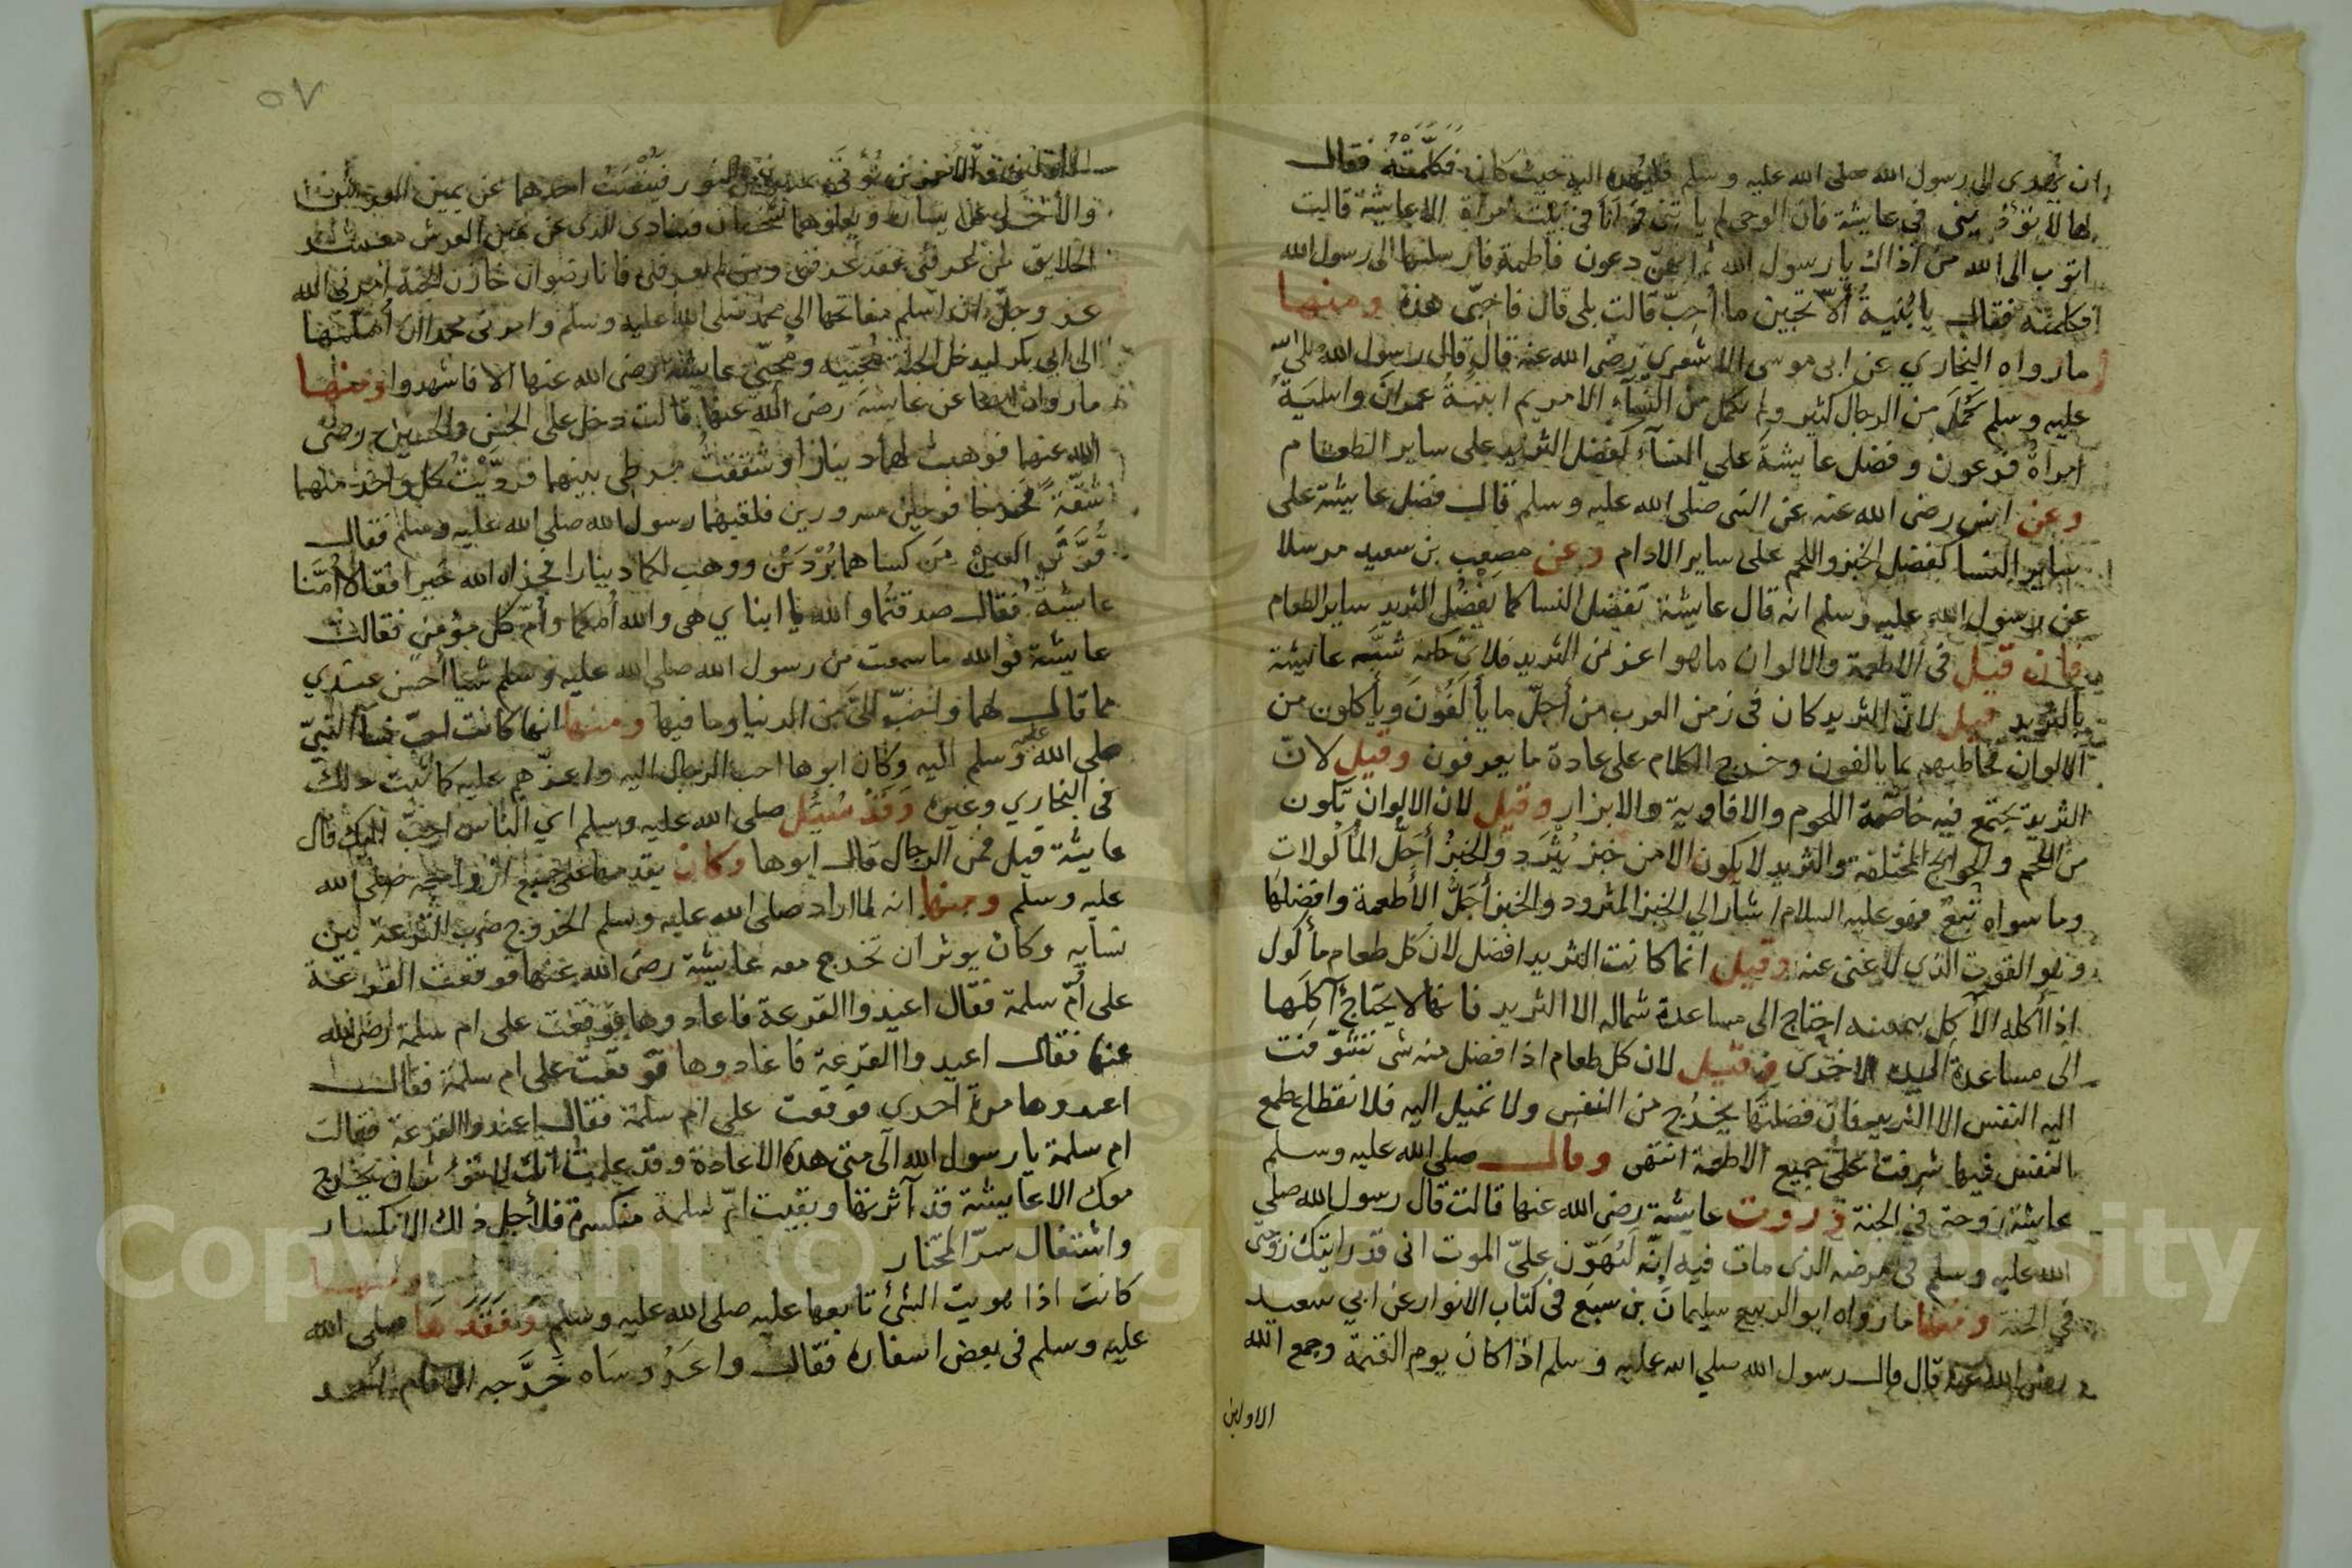 ان يهدى الى رسول الله صلى الله عليه وسلم فليهده اليه حيث كان فكلمته فقال
لها لا تؤذيني في عايشة فان الوحى لم ياتني وانا في بيت امراة الا عايشة قالت
اتوب الى الله من اذاك يا رسول الله ثم انهن دعون فاطمة فارسلنها الى رسول الله
فكلمته فقال يا بنية ألا تحبين ما أحب قالت بلى قال فاحبى هذه ومنها
ما رواه البخاري عن ابى موسى الاشعري رضى الله عنه قال قال رسول الله صلى الله
عليه وسلم كمل من الرجال كثير ولم يكمل من النسآء الا مريم ابنة عمران واسية
امراة فرعون وفضل عايشة على النسآء كفضل الثريد على ساير الطعام
وعن انس رضى الله عنه عن النبى صلى الله عليه وسلم قال فضل عايشة على
ساير النسا كفضل الخبز واللحم على ساير الادام وعن مصعب بن سعيد مرسلا
عن رسول الله عليه وسلم انه قال عايشة تفضل النسا كما يفضل الثريد ساير الطعام
فان قيل في الاطعمة والالوان ما هو اعز من الثريد فلاى حكمة شبه عايشة
بالثريد قيل لان الثريد كان في زمن العرب من أجل ما يألفون ويأكلون من
الالوان فخاطبهم بما يالفون وخرج الكلام على عادة ما يعرفون وقيل لان
الثريد تجتمع فيه خاصة اللحوم والافاوية والابزار وقيل لان الالوان تكون
من اللحم والحوائج المختلفة والثريد لا يكون الا من خبز يثرد والخبز أجل المأكولات
وما سواه تبع فهو عليه السلام اشار الى الخبز المثرود والخبز أجل الأطعمة وافضلها
وهو القوت الذي لا غنى عنه وقيل انما كانت الثريد افضل لان كل طعام مأكول
اذا أكله الآكل بيمينه احتاج الى مساعدة شماله الا الثريد فانها لا يحتاج آكلها
الى مساعدة اليد الاخرى وقيل لان كل طعام اذا فضل منه شى تتشوفت
اليه النفس الا الثريد فان فضلتها يخرج من النفس ولا تميل اليه فلانقطاع طمع
النفس فيها شرفت على جميع الاطعمة انتهى وقال صلى الله عليه وسلم
عايشة زوجة في الجنة وروت عايشة رضى الله عنها قالت قال رسول الله صلى
الله عليه وسلم في مرضه الذى مات فيه انه ليهون على الموت انى قد رايتك زوجتى
في الجنة ومنها ما رواه ابو الربيع سليمان بن سبع في كتاب الانوار عن ابي سعيد
رضى الله عنه قال قال رسول الله صلي الله عليه وسلم اذا كان يوم القيمة وجمع الله
الاولين
٥٧
الاولين والآخرين يؤتى بمنبرين من نور فينصب احدهما عن يمين العرش
والأخر عن يساره ويعلوهما شخصان فينادى الذى عن يمين العرش معشر
الخلايق من عرفنى فقد عرفنى ومن لم يعرفنى فانا رضوان خازن الجنة امرنى الله
عز وجل ان اسلم مفاتحها الى محمد صلى الله عليه وسلم وامرنى محمد ان اسلمها
الى ابى بكر ليدخل الجنة محبيه ومحبى عايشة رضى الله عنها الا فاشهدوا ومنها
ما رواه ايضا عن عايشة رضى الله عنها قالت دخل على الحسن والحسين رضى
الله عنهما فوهبت لهما دينارا وشققت مرطى بينهما فرديت كل واحد منهما
شقة فخرجا فرحين مسرورين فلقيهما رسول الله صلى الله عليه وسلم فقال
قرتى العين من كساهما بردين ووهب لكما دينارا فجزاه الله خيرا فقالا أمنا
عايشة فقال صدقتما والله يا ابناي هى والله أمكما وأم كل مؤمن فقالت
عايشة فوالله ما سمعت من رسول الله صلى الله عليه وسلم شيا أحسن عندي
مما قال لهما ولا احب الى من الدنيا وما فيها ومنها انها كانت احب نسآ النبى
صلى الله عليه وسلم اليه وكان ابوها احب الرجال اليه واعزهم عليه كما ثبت ذلك
في البخاري وغيره وقد سئل صلى الله عليه وسلم اي الناس احب اليك قال
عايشة قيل فمن الرجال قال ابوها وكان يقدمها على جميع ازواجه صلى الله
عليه وسلم ومنها انه لما اراد صلى الله عليه وسلم الخروج ضرب القرعة بين
نسايه وكان يوثر ان تخرج معه عايشة رضى الله عنها فوقعت القرعة
على أم سلمة فقال اعيدوا القرعة فاعادوها فوقعت على ام سلمة رضى الله
عنها فقال اعيدوا القرعة فاعادوها فوقعت على ام سلمة فقال
اعيدوها مرة اخرى فوقعت على ام سلمة فقال اعيدوا القرعة فقالت
ام سلمة يا رسول الله الى متى هذه الاعادة وقد علمت انك لا تؤثر ان يخرج
معك الا عايشة قد آثرتها وبقيت ام سلمة منكسرة فلأجل ذلك الانكسار
واشتغال سر المختار ومنها
كانت اذا هويت الشئ تابعها عليه صلى الله عليه وسلم وفقدها صلى الله
عليه وسلم في بعض اسفاره فقال واعروساه خرجه الامام احمد